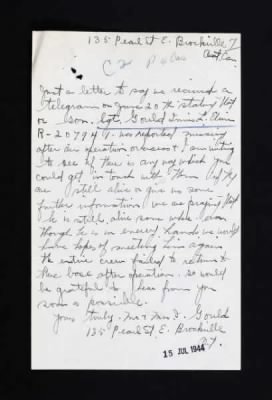 135 Pearl St E. Brockville
Ont Can.
Just a letter to say we received a
telegram on June 20th stating that
our son. Sgt. Gould
R-20794 was reported missing
after air operation overseas I am writing
to see if there is any way which you
could get in touch with them if they
are still alive or give us some
further information. we are praying that
he is still alive some where. even
though he is in enemy hands we would
have hopes of meeting him again
the entire crew failed to return to
their base after operation. so would
be grateful to hear from you
soon as possible.
yours truly. Mr & Mrs Gould
135 Pearl St. E. Brockville
15 JUL 1944